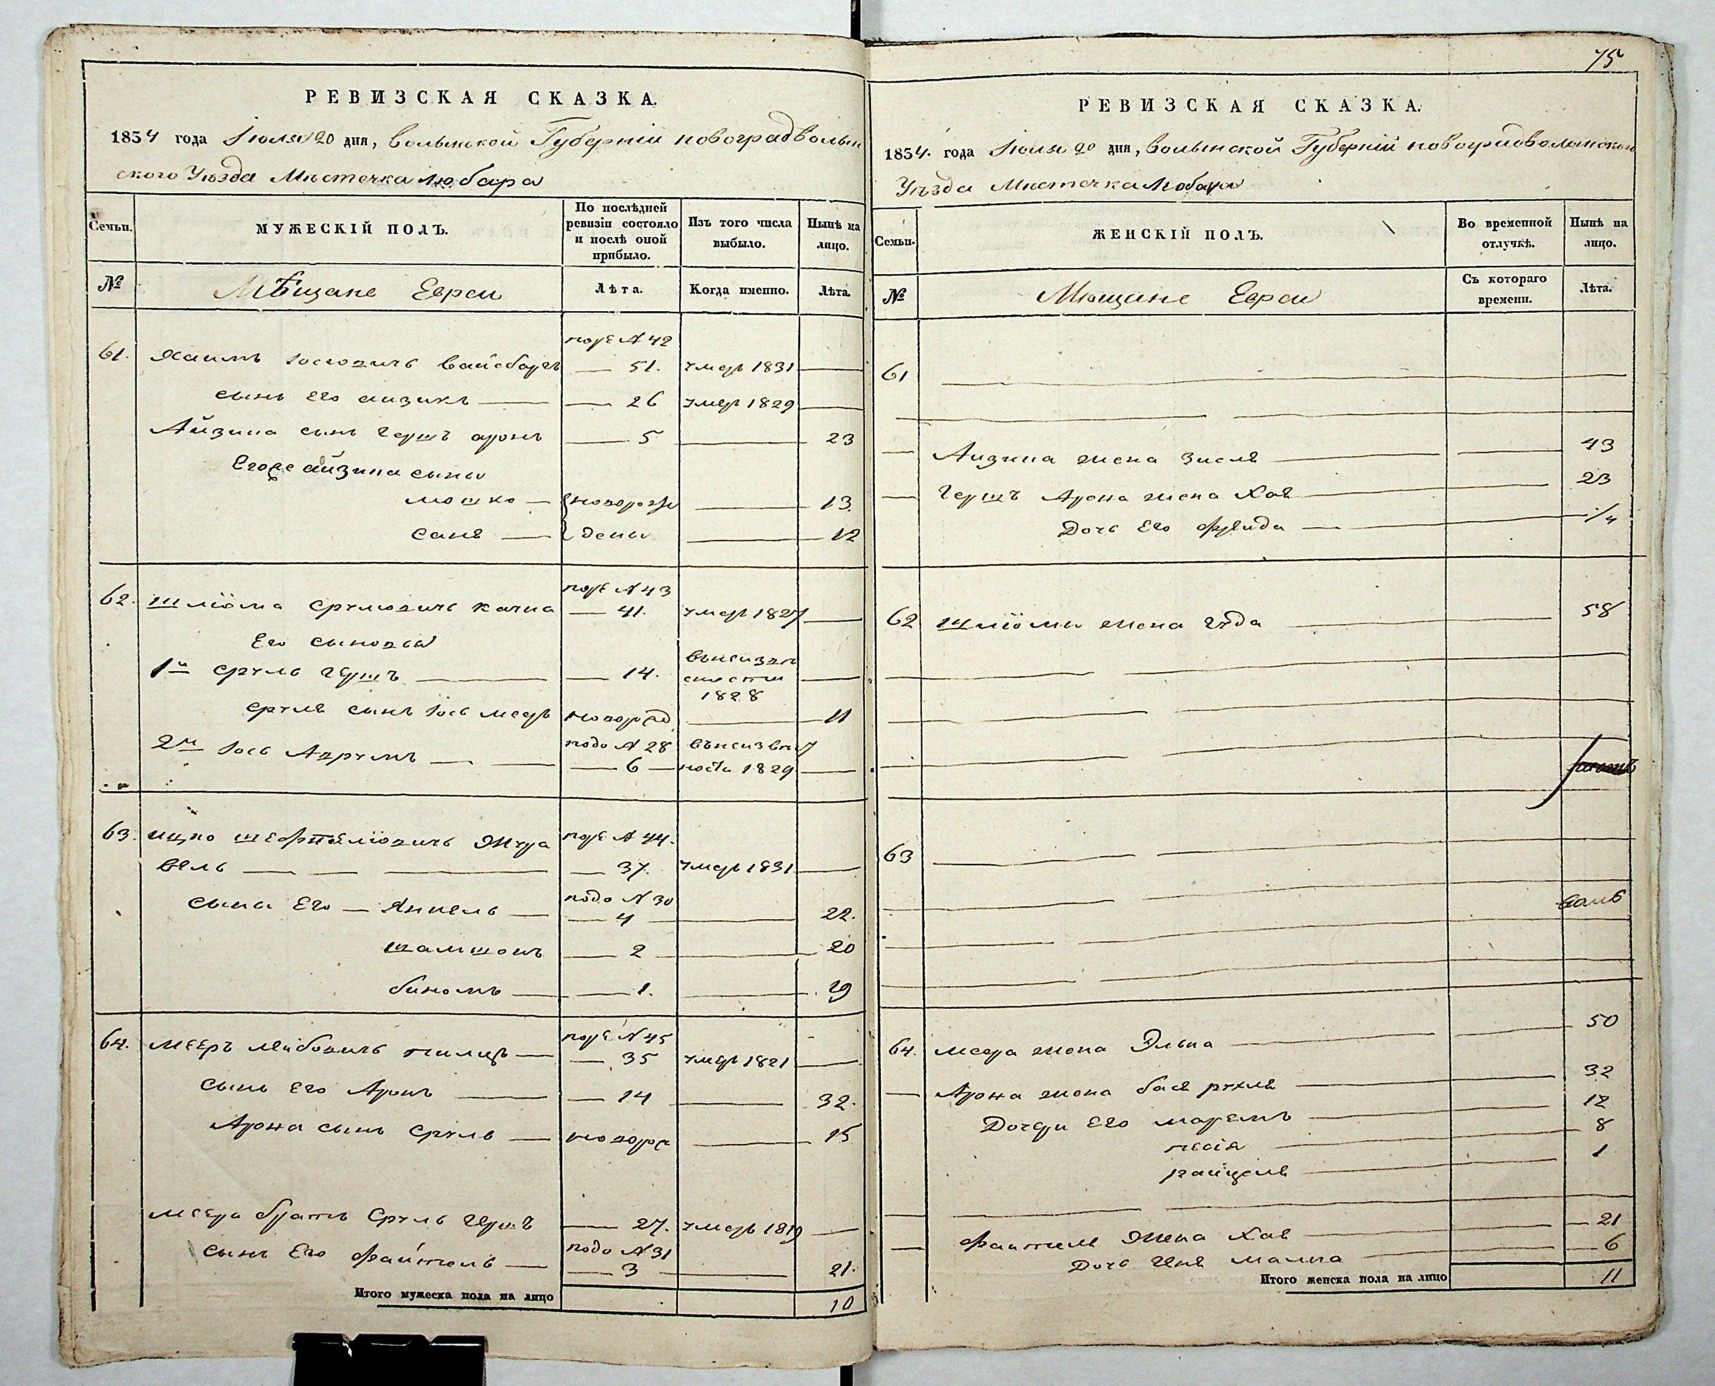 РЕВИЗСКАЯ СКАЗКА.
1834 года Іюля 20 дня, Волынской Губерніи новоградволын
ского Уѣзда Мѣстечка Любара
Семьи.
МУЖЕСКІЙ ПОЛЪ.
По послѣдней ревизіи состояло и послѣ оной прибыло.
Изъ того числа выбыло.
Нынѣ на лицо.
№
Мѣщане Евреи
Лѣта.
Когда именно.
Лѣта.
поре № 42
61. Хаимъ Іосіовичъ Вайсбаргъ 51. умеръ 1831
сынъ его аизикъ 26 умер 1829
Айзика сынъ Гершъ аронъ 5 23
Егоже айзика сыны
мошко новорож 13.
саня дены 12
поре № 43
62. Шліома Срулювичъ качка 41. умеръ 1827
Его сыновья
1й сруль гершъ 14. внеизвѣ стности 1828
сруля сынъ Іось меер новорож 11
2й Іось Аврумъ подо № 28 6 внеизвѣст ности 1829
63. ицко шефтеліовичъ Жура поре № 44.
вель 37. умеръ 1831
сыны его Янкель подо № 30 4 22.
шамшонъ 2 20
биномъ 1. 19
64. Мееръ Лейбовичъ поре № 45 35 умеръ 1821
сынъ его Аронъ 14 32.
Арона сынъ сруль новорож 15
Меера братъ Сруль гершъ 27. умеръ 1819
сынъ его Файтель подо № 31 3 21.
Итого мужеска пола на лицо 10
75
РЕВИЗСКАЯ СКАЗКА.
1834. года Іюля 20 дня, Волынской Губерніи новоградволынского
Уѣзда Мѣстечка Любара
Семьи.
ЖЕНСКІЙ ПОЛЪ.
Во временной отлучкѣ.
Нынѣ на лицо.
№
Мѣщане Евреи
Съ котораго времени.
Лѣта.
61
Аизика жена Зисля 43
Гершъ Арона жена Хая 23
Дочь его Фрейда 1/4
62 Шліомы жена Гуда 58
63
64. меера жена Элька 50
Арона жена бася рухля 32
Дочери его маремъ 12
песія 8
райцеля 1
Файтеля жена Хая 21
Дочь Ея малка 6
Итого женска пола на лицо 11